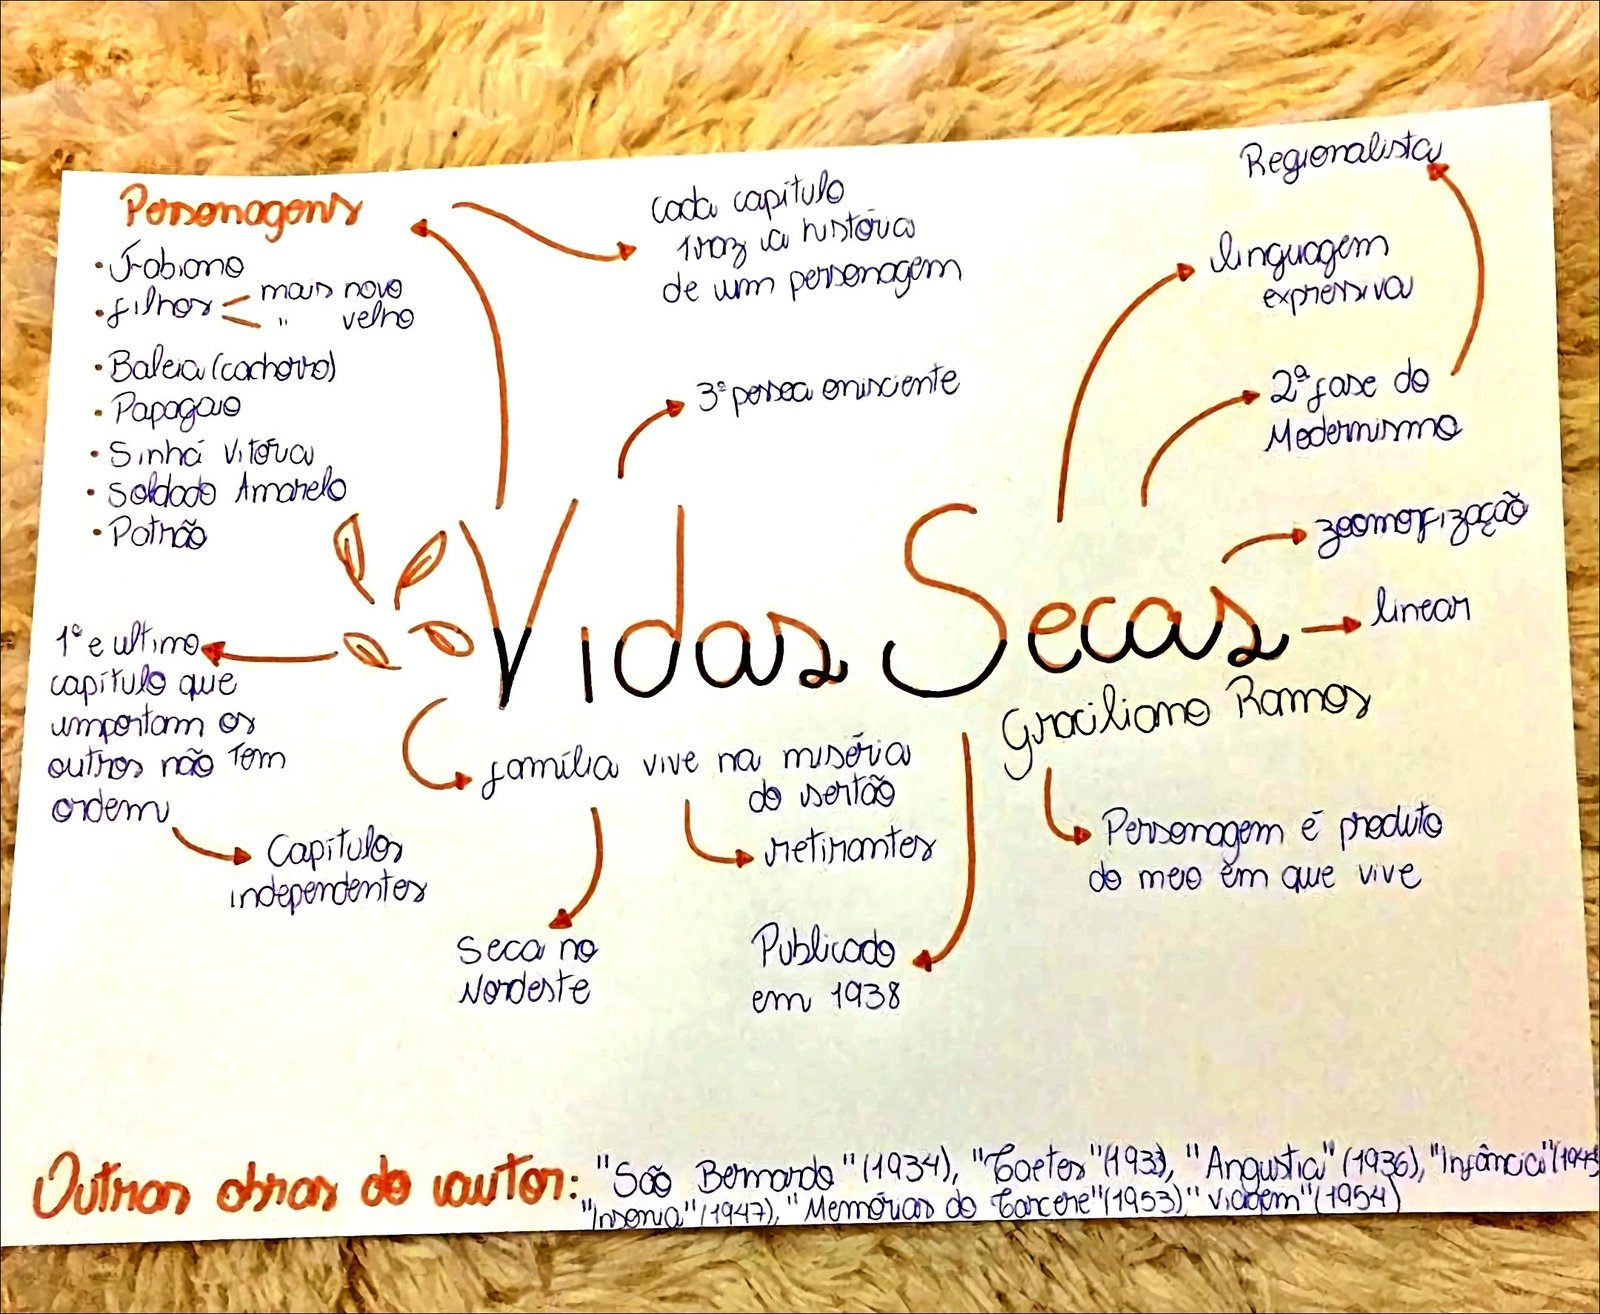 Personagens
• Fabiano
• filhos mais novo
" velho
• Baleia (cachorro)
• Papagaio
• Sinhá Vitória
• Soldado Amarelo
• Patrão
cada capítulo
traz a história
de um personagem
3ª pessoa onisciente
Regionalista
linguagem
expressiva
2ª fase do
Modernismo
zoomorfização
linear
Vidas Secas
Graciliano Ramos
1º e ultimo
capítulo que
importam os
outros não tem
ordem
Capítulos
independentes
família vive na miséria
do sertão
retirantes
Seca no
Nordeste
Publicado
em 1938
Personagem é produto
do meio em que vive
Outras obras do autor: "São Bernardo" (1934), "Caetes" (1933), "Angustia" (1936), "Infância" (1945
"Insonia" (1947), "Memórias do Carcere" (1953), "Viagem" (1954)